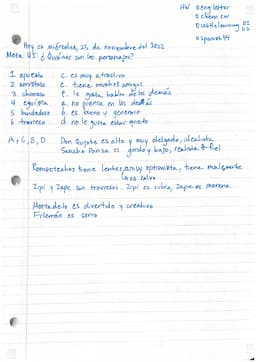 HW o eng letter
o chem cer
o castle learning 01
02
o spanish 44
Hoy es miércoles, 23, de noviembre del 2022
Meta 45: ¿Quiénes son los personajes?
1 apuesto c. es muy atractivo
2 amistoso e. tiene muchos amigos
3 chismoso f. le gusta hablar de los demás
4 egoísta a. no piensa en los demás
5 bondadoso b. es bueno y generoso
6 travieso d. no le gusta estar quieto
A, C, B, D Don Quijote es alto y muy delgado, idealista
Sancho Panza es gordo y bajo, realista & fiel
Rompetechos tiene lentes, es muy optimista, tiene mala suerte
es calvo
Zipi y Zape son traviesos. Zipi es rubio, Zape es moreno
Mortadelo es divertido y creativo
Filemón es serio